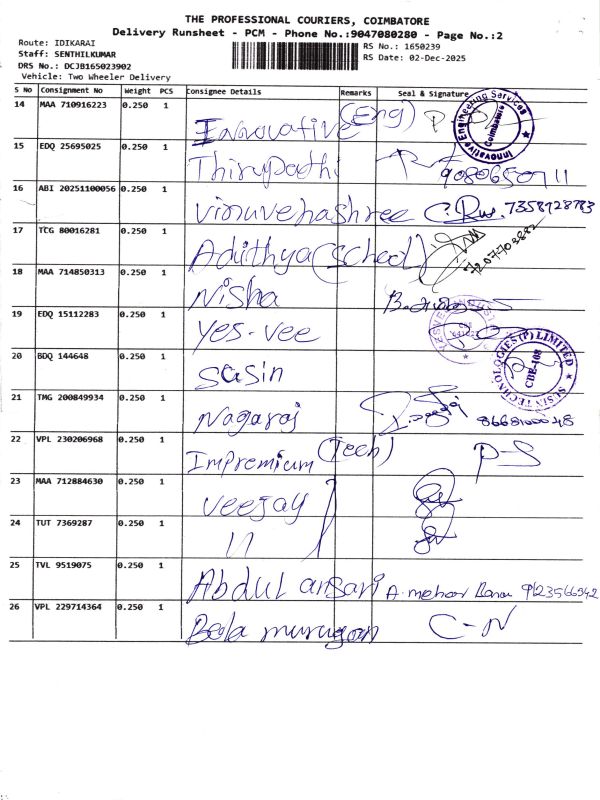 THE PROFESSIONAL COURIERS, COIMBATORE
Delivery Runsheet - PCM - Phone No.:9047080280 - Page No.:2
Route: IDIKARAI
Staff: SENTHILKUMAR
DRS No.: DCJB165023902
Vehicle: Two Wheeler Delivery
RS No.: 1650239
RS Date: 02-Dec-2025
S No Consignment No Weight PCS Consignee Details Remarks Seal & Signature
14 MAA 710916223 0.250 1 Innovative (Eng)
Innovative Engineering Services Coimbatore
15 EDQ 25695025 0.250 1 Thirupathi 9080650711
16 ABI 20251100056 0.250 1 7358728783
17 TCG 80016281 0.250 1 Adhithya (school)
18 MAA 714850313 0.250 1 Nisha
19 EDQ 15112283 0.250 1 Yes-vee
20 BDQ 144648 0.250 1 Sasin
SUSIN TECHNOLOGIES (P) LIMITED CBE-108
21 TMG 200849934 0.250 1 Nagaraj
22 VPL 230206968 0.250 1 Impremium (Tech) P-S
23 MAA 712884630 0.250 1 Veejay
24 TUT 7369287 0.250 1 "
25 TVL 9519075 0.250 1 Abdul ansari
26 VPL 229714364 0.250 1 Bala murugan C-N